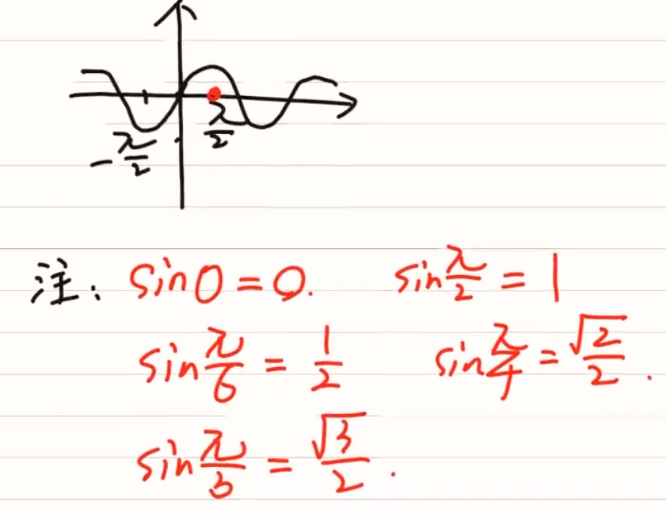 -π/2 π/2
注: sin0=0. sin π/2 = 1
sin π/6 = 1/2 sin π/4 = √2/2.
sin π/3 = √3/2.